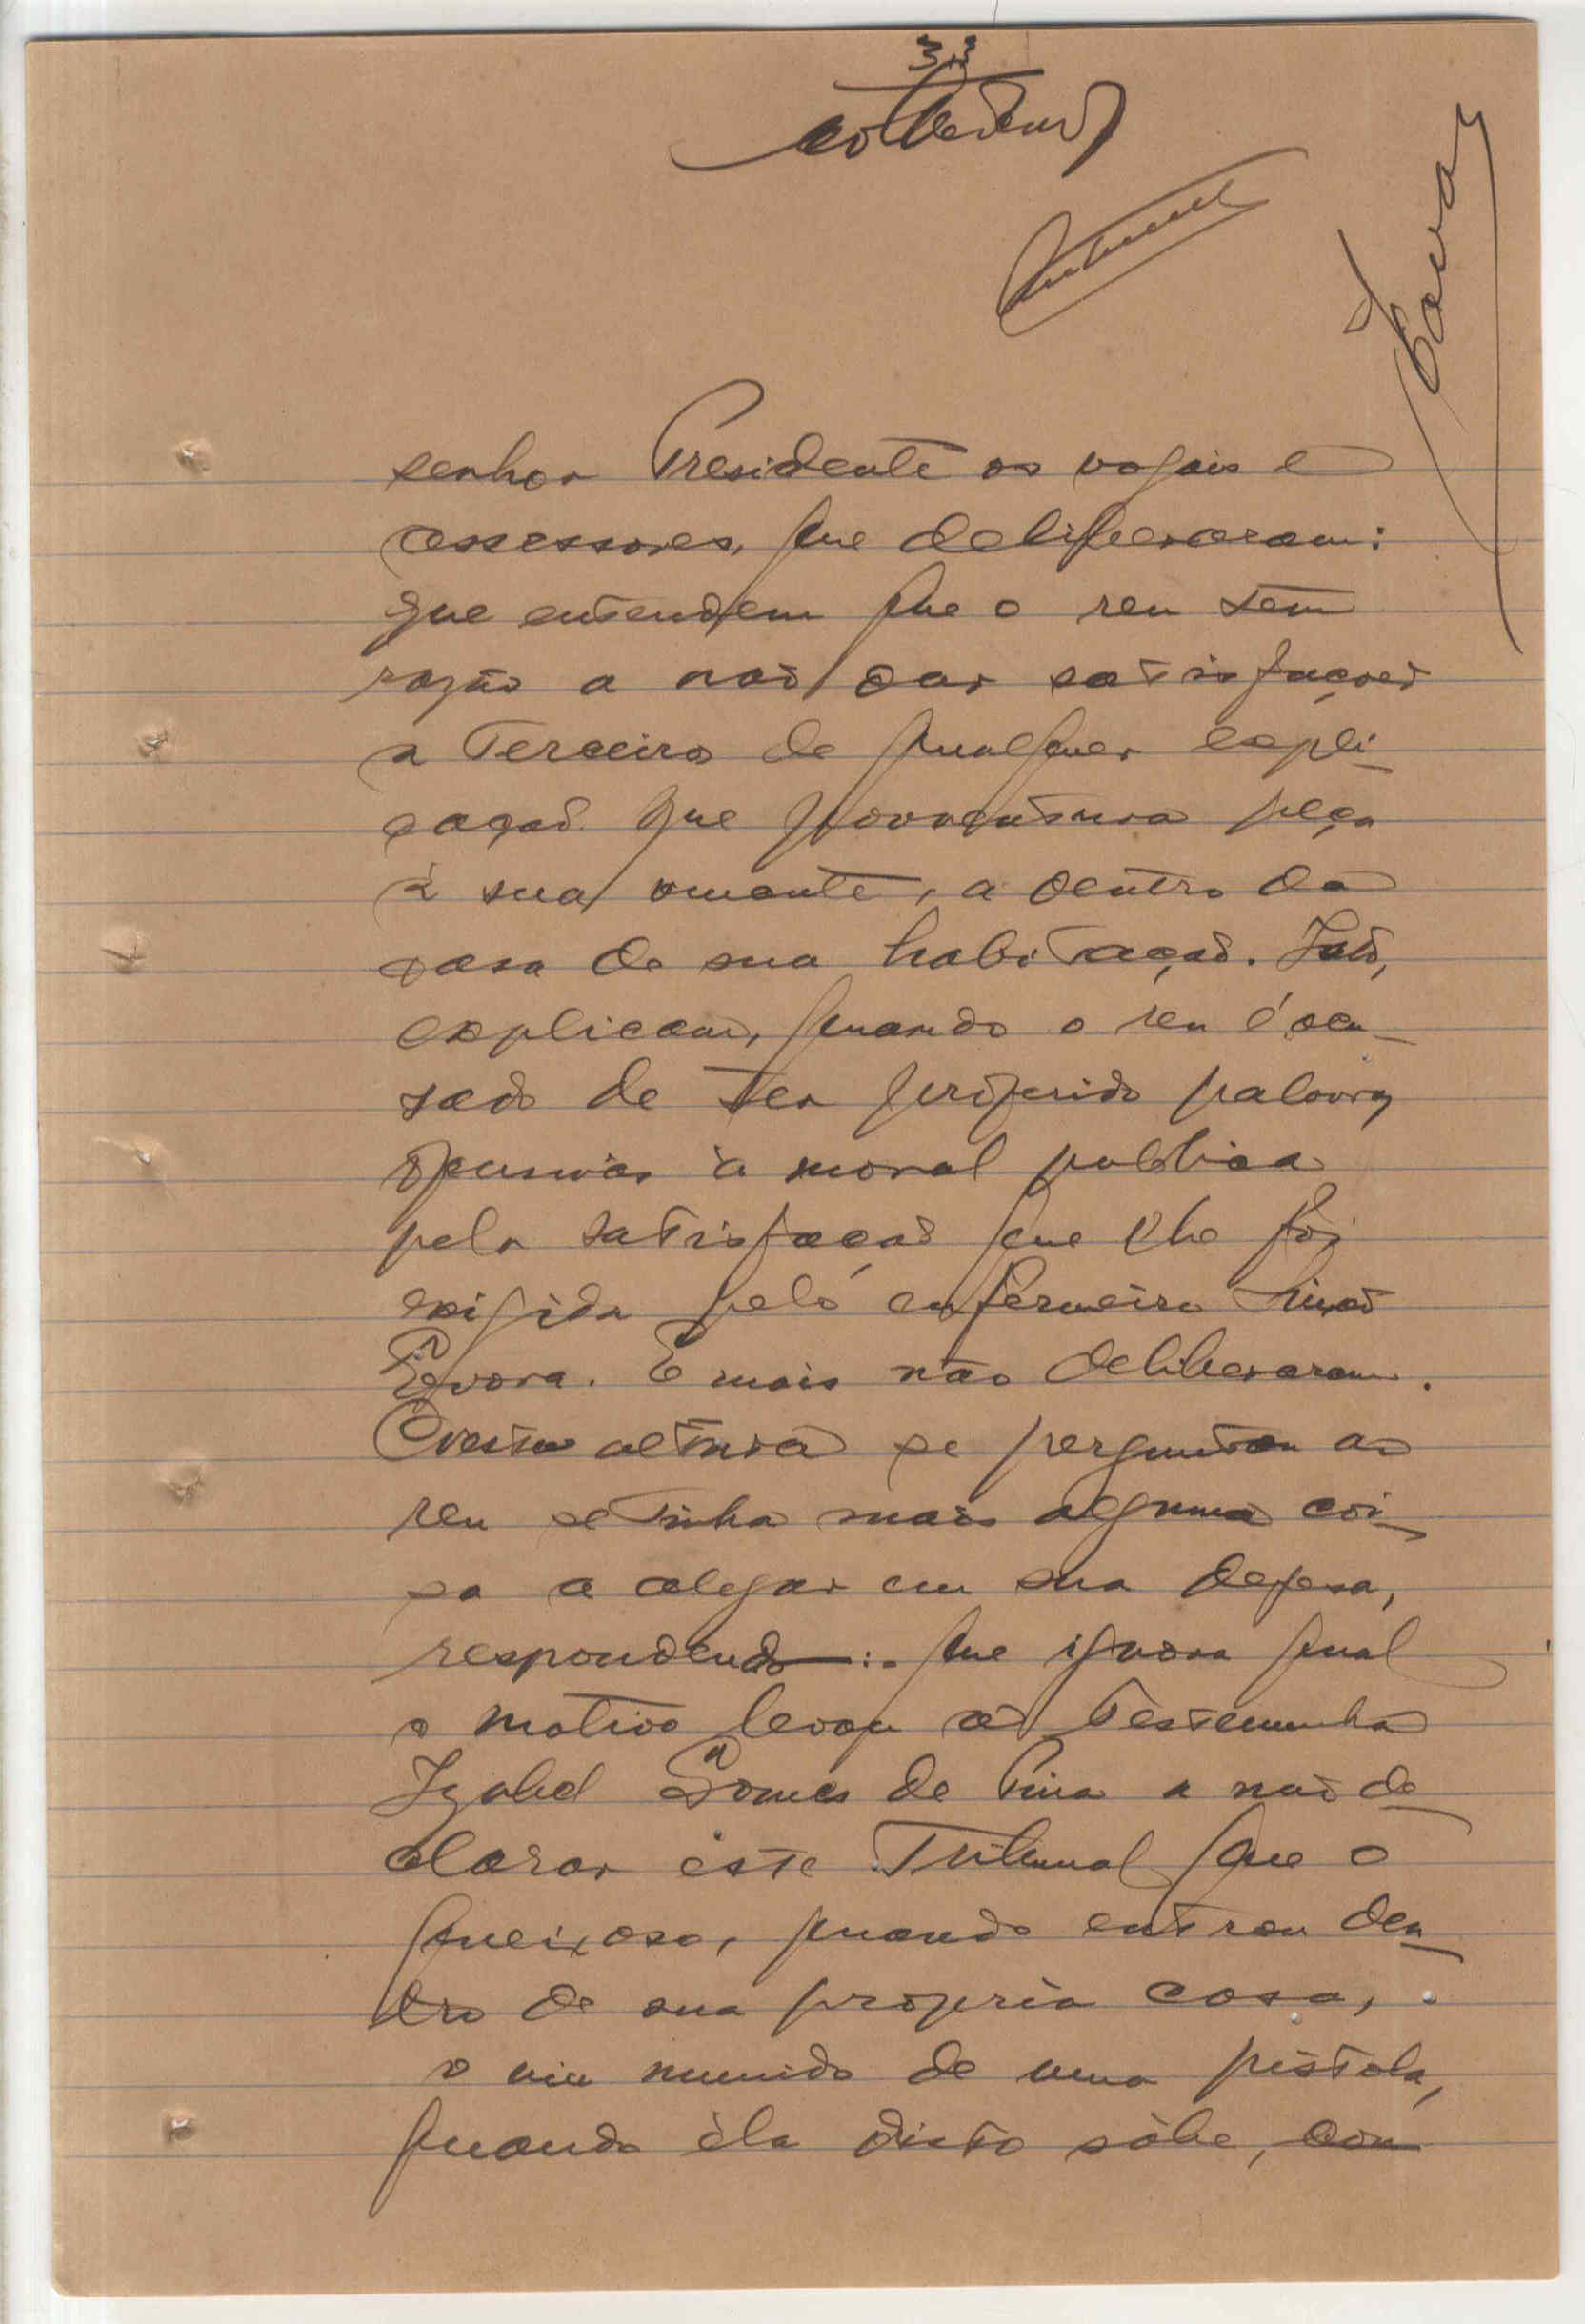 33
senhor Presidente os vogais e
assessores, que deliberaram:
que entendem que o reu tem
razão a não dar satisfações
a Terceiros de qualquer expli-
cação que porventura peça
á sua amante, a dentro da
casa de sua habitação. Isto,
explicam, quando o reu é acu-
sado de ter proferido palavras
ofensivas à moral publica
pela satisfação que lhe foi
exigida pelo enfermeiro Simão
Évora. E mais não deliberaram.
Nesta altura se perguntou ao
reu se tinha mais alguma coi-
sa a alegar em sua defesa,
respondendo:- que ignora qual
o motivo levou a Testemunha
Izabel Gomes de Pina a não de-
clarar este Tribunal que o
queixoso, quando entrou den-
tro de sua propria casa,
o viu munido de uma pistola,
quando éla disto sàbe, com